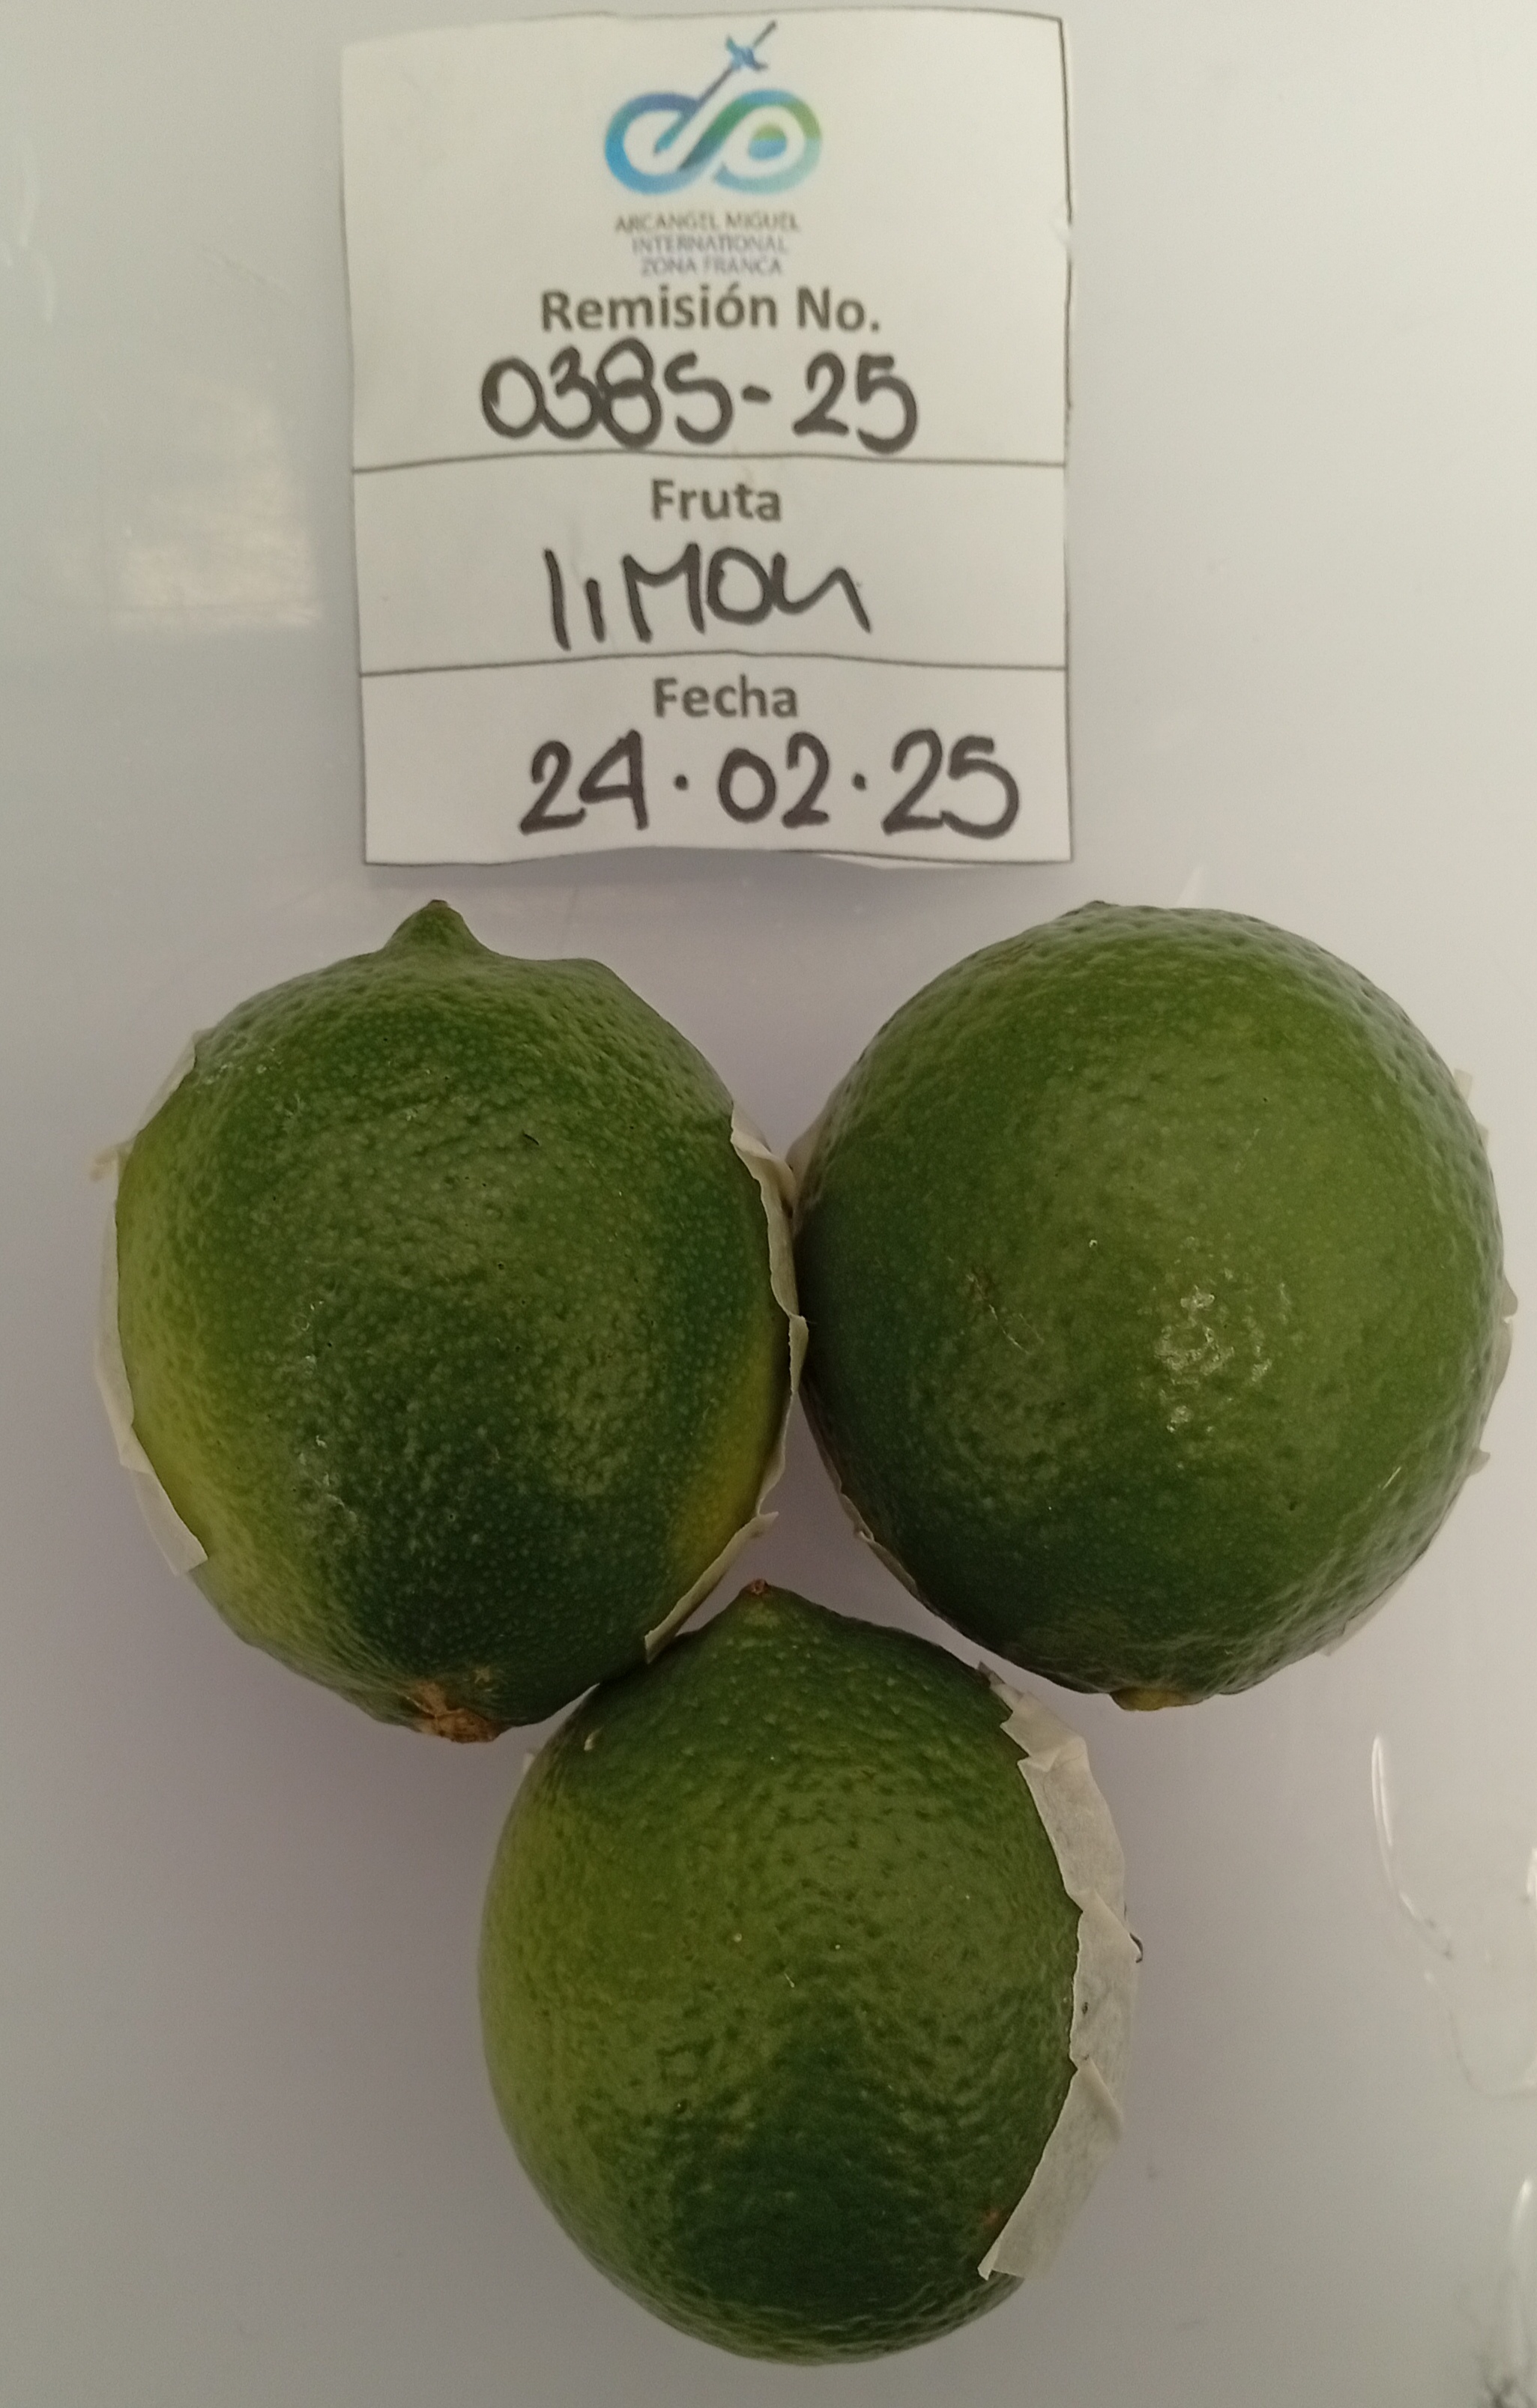 ARCANGEL MIGUEL
INTERNATIONAL
ZONA FRANCA
Remisión No.
0385-25
Fruta
lIMON
Fecha
24.02.25